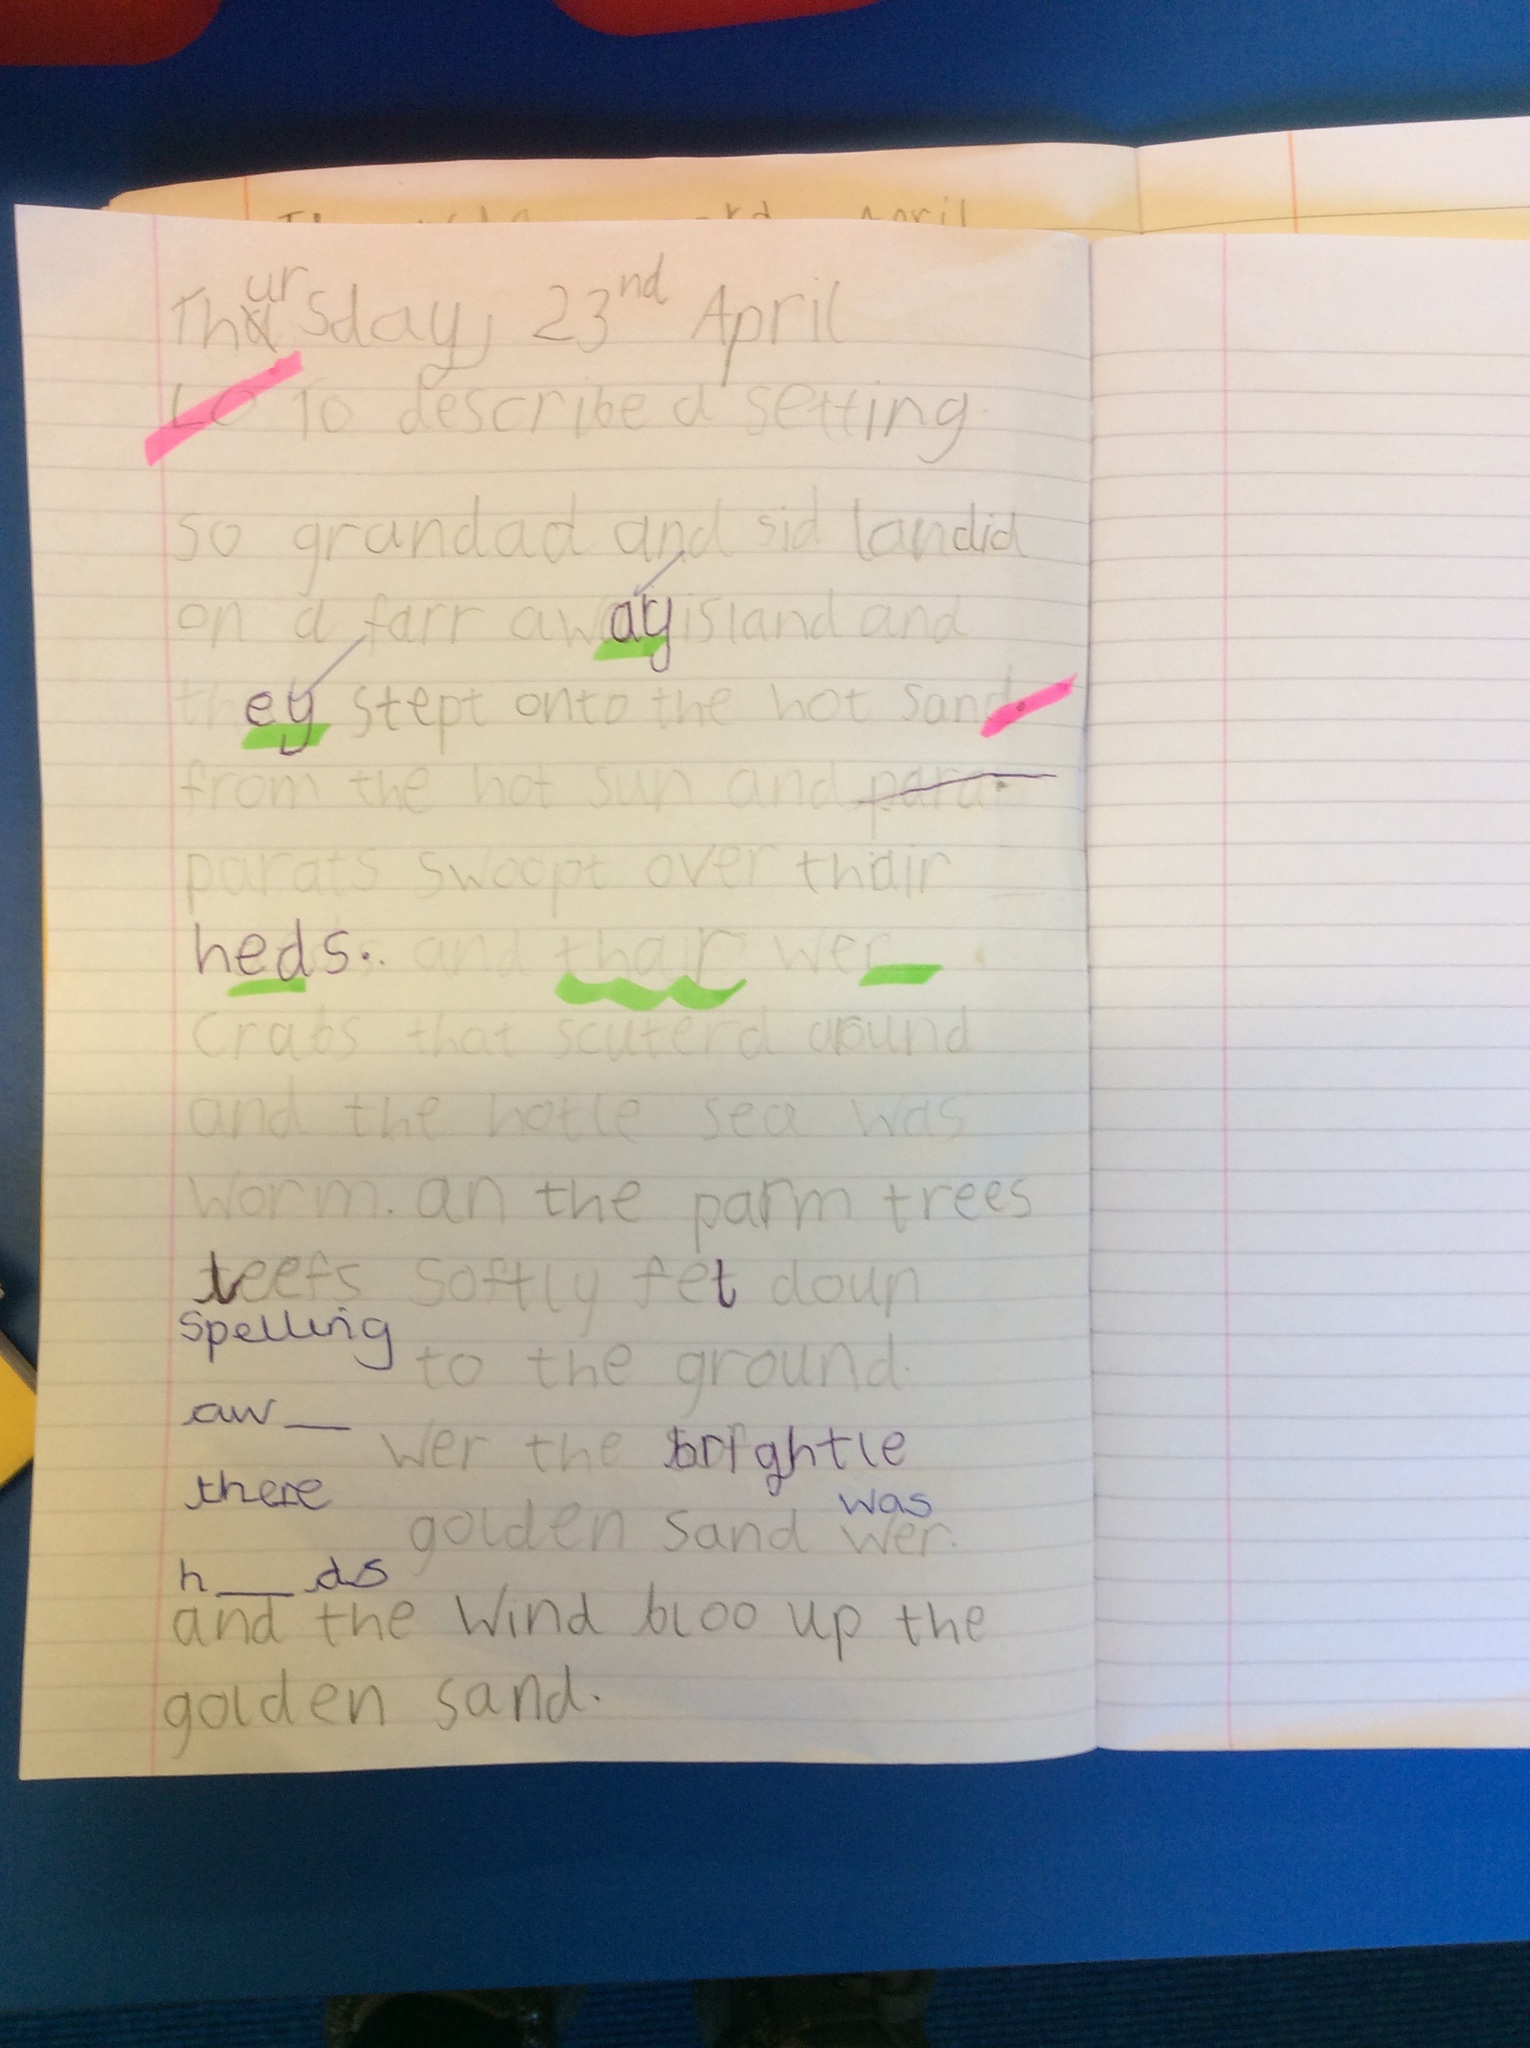 Thursday, 23nd April
LO To describe a setting.
so grandad and sid landid
on a farr away island and
they stept onto the hot sand.
from the hot sun and parat
parats swoopt over thair
heds. and thair wer
crabs that scuterd around
and the hotle sea was
worm. an the parm trees
leefs softly fel doun
Spelling
to the ground.
aw__
wer the brightle
there
was
golden sand wer.
h__ds
and the wind bloo up the
golden sand.